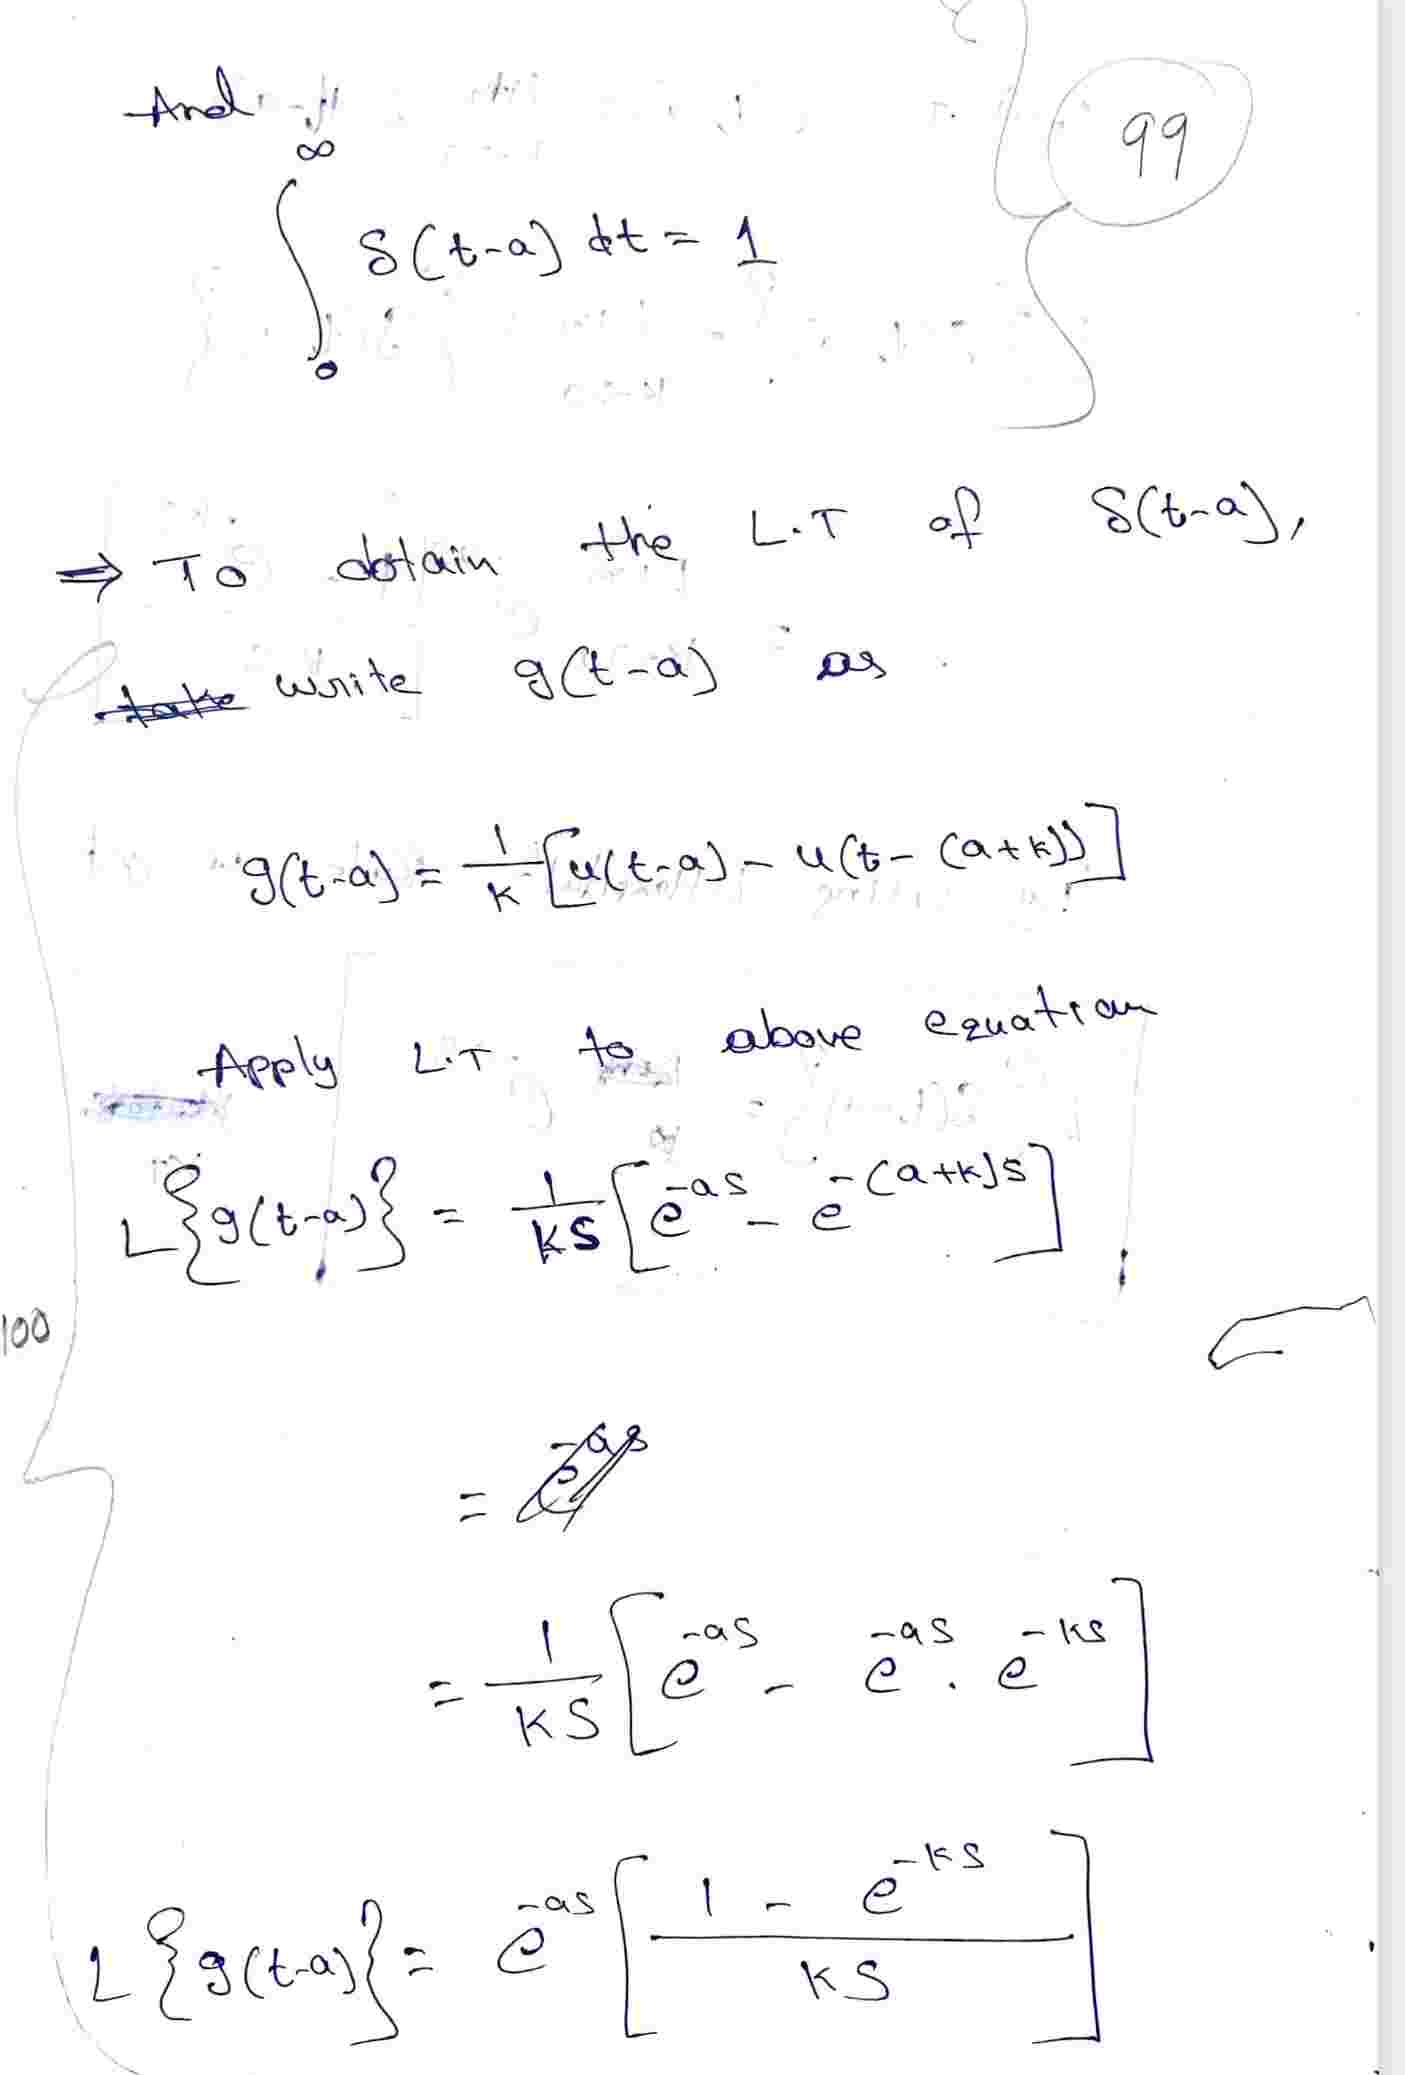 And
99
∞
∫ δ(t-a) dt = 1
0
⇒ To obtain the L.T of δ(t-a),
take write g(t-a) as
g(t-a) = 1/k [u(t-a) - u(t-(a+k))]
Apply L.T. to above equation
L{g(t-a)} = 1/ks [e^-as - e^-(a+k)s]
100
= e^-as
= 1/ks [e^-as - e^-as . e^-ks]
L{g(t-a)} = e^-as [1 - e^-ks / ks]